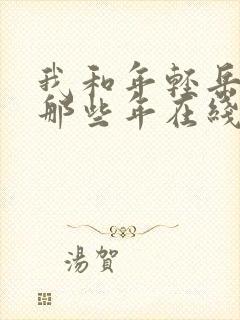 我和年轻岳
那些年在线
湯賀